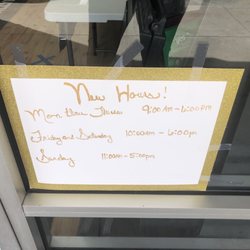 New Hours!
Mon. thru Thurs 9:00 AM - 6:00 PM
Friday and Saturday 10:00am - 6:00pm
Sunday 11:00am - 5:00pm